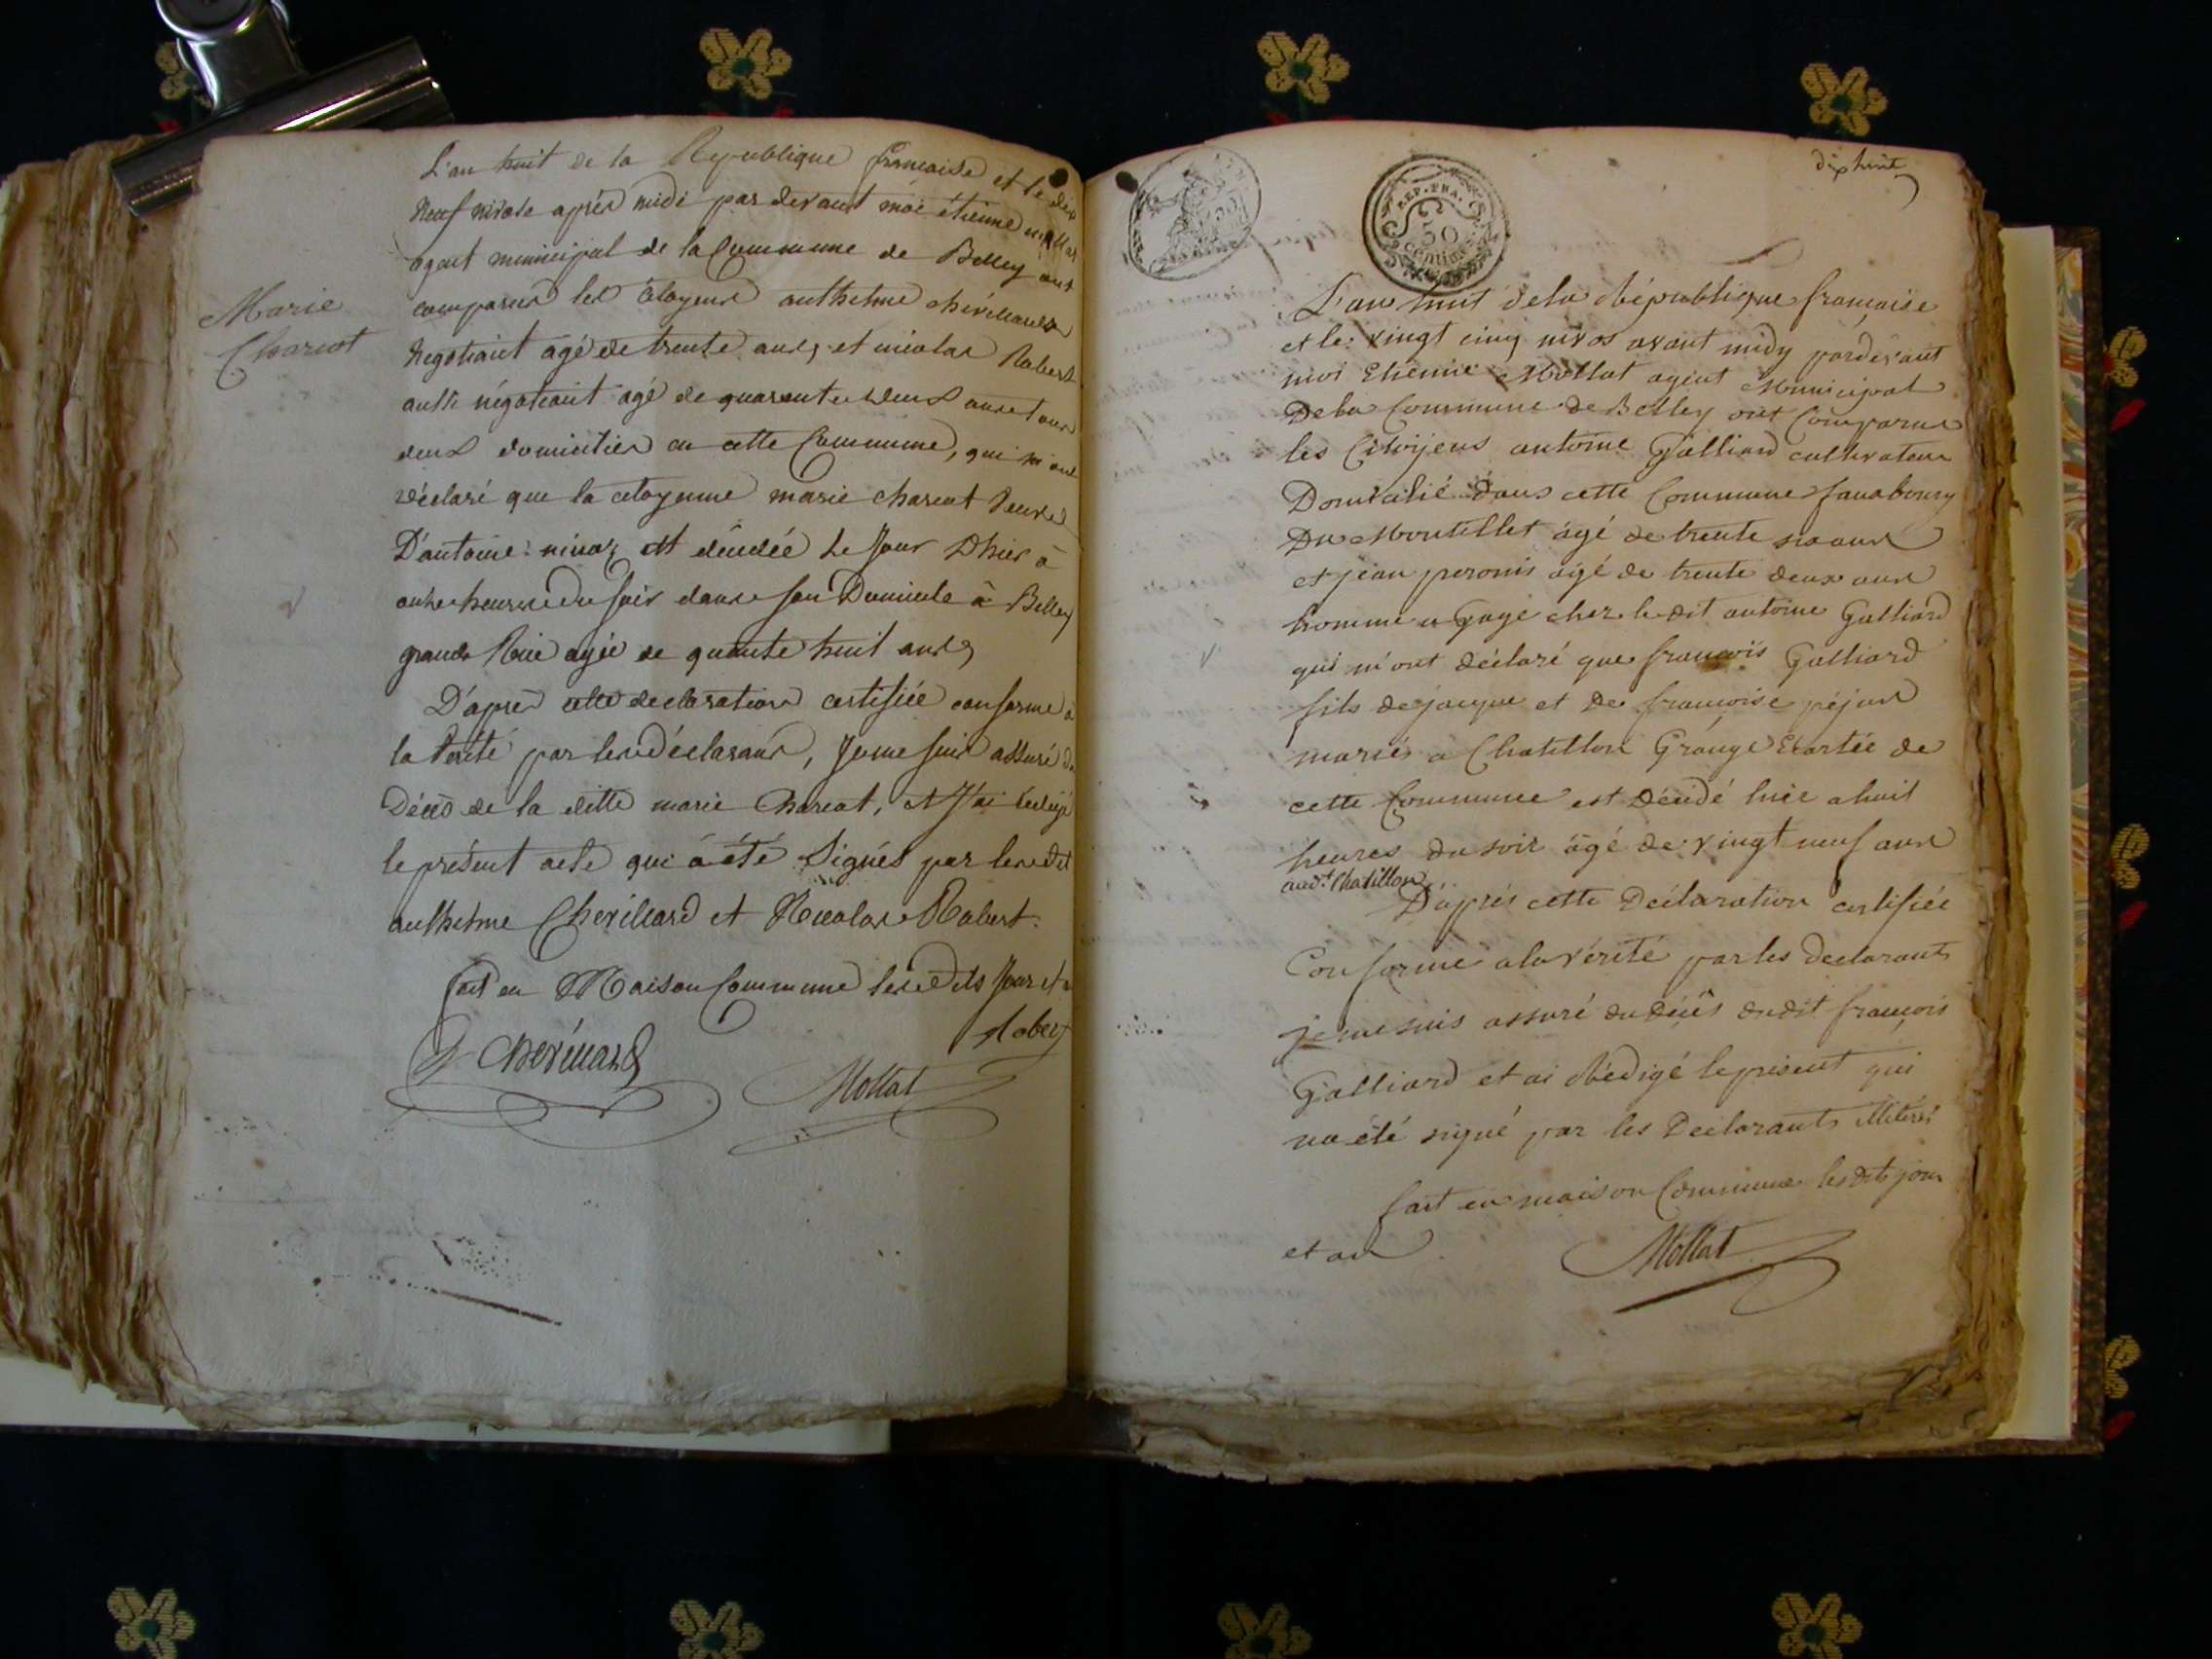 L'an huit de la Republique francaise et le dix
neuf nivose après midi par devant moi étienne mollat
agent municipal de la Commune de Belley ont
comparus les citoyens anthelme chérillard
negotiant agé de trente ans, et nicolas Robert
aussi négotiant agé de quarante deux ans tous
deux domiciliés en cette Commune, qui m'ont
déclaré que la citoyenne marie charcot veuve
D'antoine ninaz est décédée le Jour Dhier à
onze heures du soir dans son Domicile à Belley
grande Rüe agée de quarante huit ans,
D'après cette declaration certifiée conforme à
la vérité par les déclarans, Je me suis assuré du
Décès de la ditte marie Charcot, et J'ai rédigé
le présent acte qui à été Signés par lesdit
anthelme Cherillard et Nicolas Robert.
fait en Maison Commune lesdits Jour et
Robert
Cherillard
Mollat
Marie
Charcot
REP. FRA.
50
Centimes
dix huit
L'an huit de la République française
et le vingt cinq nivos avant midy pardevant
moi Etienne Mollat agent Municipal
De la Commune de Belley ont Comparus
les Citoyens antoine Galliard cultivateur
Domicilié dans cette Commune fauxbourg
Du Montillet âgé de trente six ans
et jean peronis âgé de trente deux ans
homme a gage chez le dit antoine Galliard
qui m'ont déclaré que françois Galliard
fils de jacque et de françoise péjus
mariés a Chatillon Grange Ecartée de
cette Commune est Décédé hier a huit
heures du soir âgé de vingt neuf ans
aud.t Chatillon
D'après cette Déclaration certifiée
Conforme a la vérité par les Declarants
je me suis assuré du Décès dudit françois
Galliard et ai Rédigé le présent qui
na été signé par les Declarants illiterés
fait en maison Commune lesdits jour
et an
Mollat